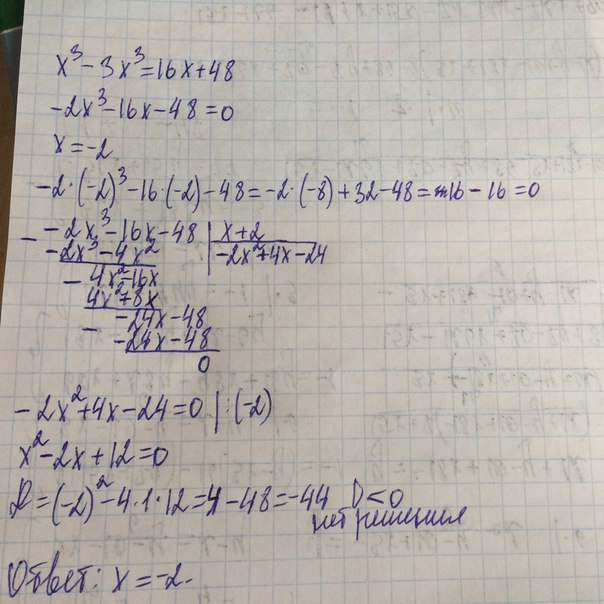 x³ - 3x³ = 16x + 48
-2x³ - 16x - 48 = 0
x = -2
-2·(-2)³ - 16·(-2) - 48 = -2·(-8) + 32 - 48 = 16 - 16 = 0
- -2x³ - 16x - 48 | x + 2
-2x³ - 4x² | -2x² + 4x - 24
- 4x² - 16x
4x² + 8x
- -24x - 48
-24x - 48
0
-2x² + 4x - 24 = 0 | :(-2)
x² - 2x + 12 = 0
D = (-2)² - 4·1·12 = 4 - 48 = -44 D < 0
нет решения
Ответ: x = -2.